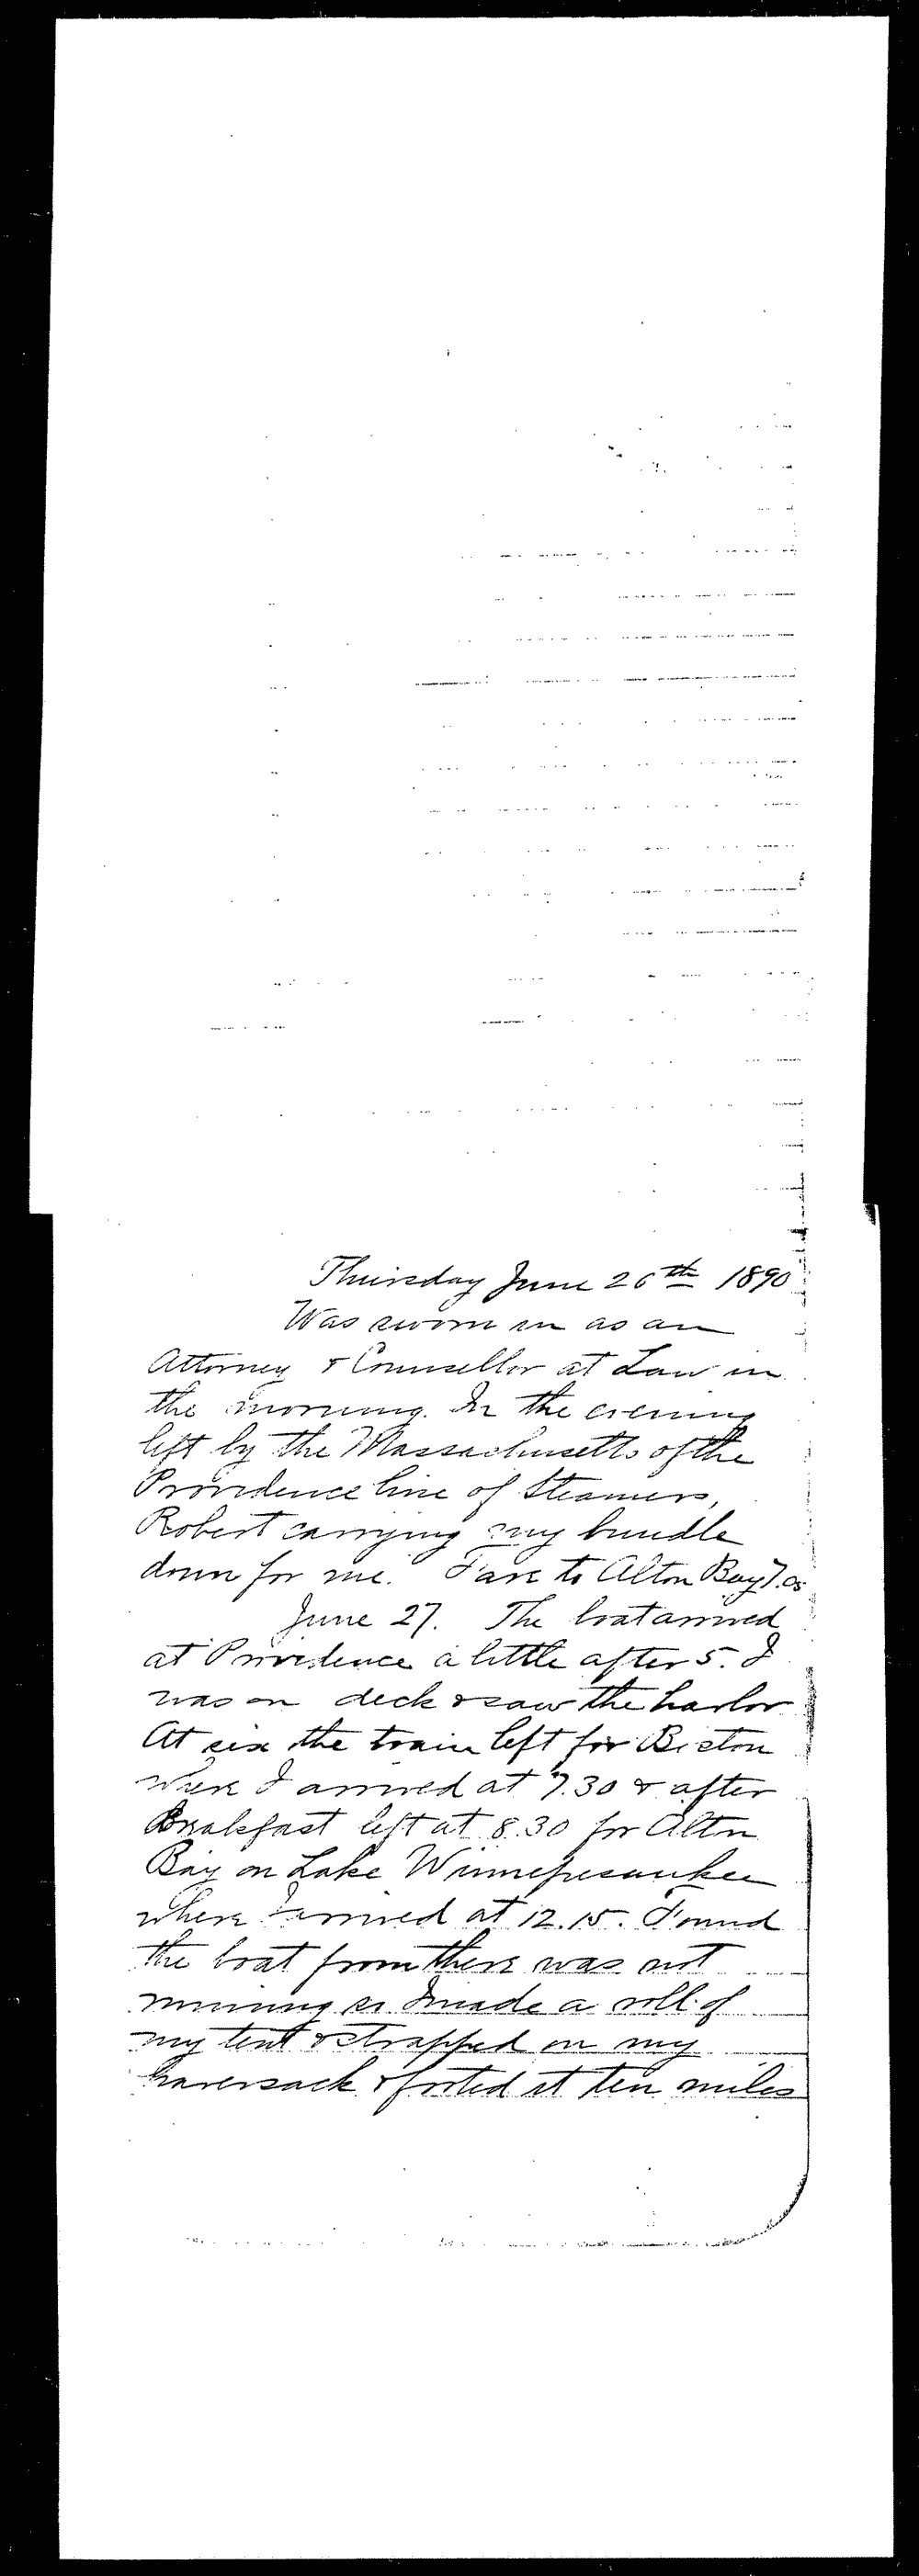 Thursday June 26th 1890
Was sworn in as an
Attorney & Counsellor at Law in
the morning. In the evening
left by the Massachusetts of the
Providence line of Steamers,
Robert carrying my bundle
down for me. Fare to Alton Bay 7.
June 27. The boat arrived
at Providence a little after 5. I
was on deck & saw the harbor
At six the train left for Boston
where I arrived at 7.30 & after
Breakfast left at 8.30 for Alton
Bay on Lake Winnepesaukee
where I arrived at 12.15. Found
the boat from there was not
running so I made a roll of
my tent & strapped on my
haversack & footed it ten miles